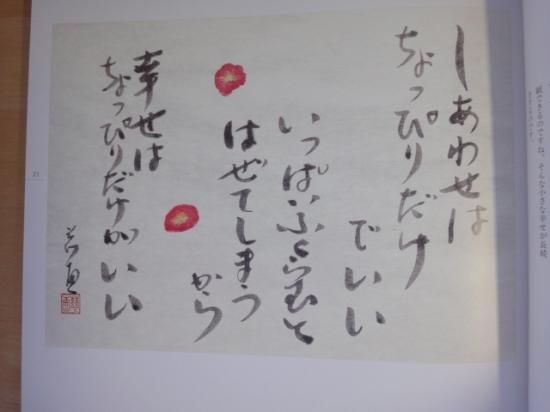 しあわせは
ちょっぴりだけ
でいい
いっぱいふくらむと
はぜてしまう
から
幸せは
ちょっぴりだけがいい
21